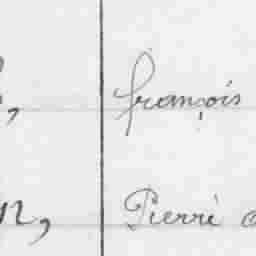 françois
Pierré